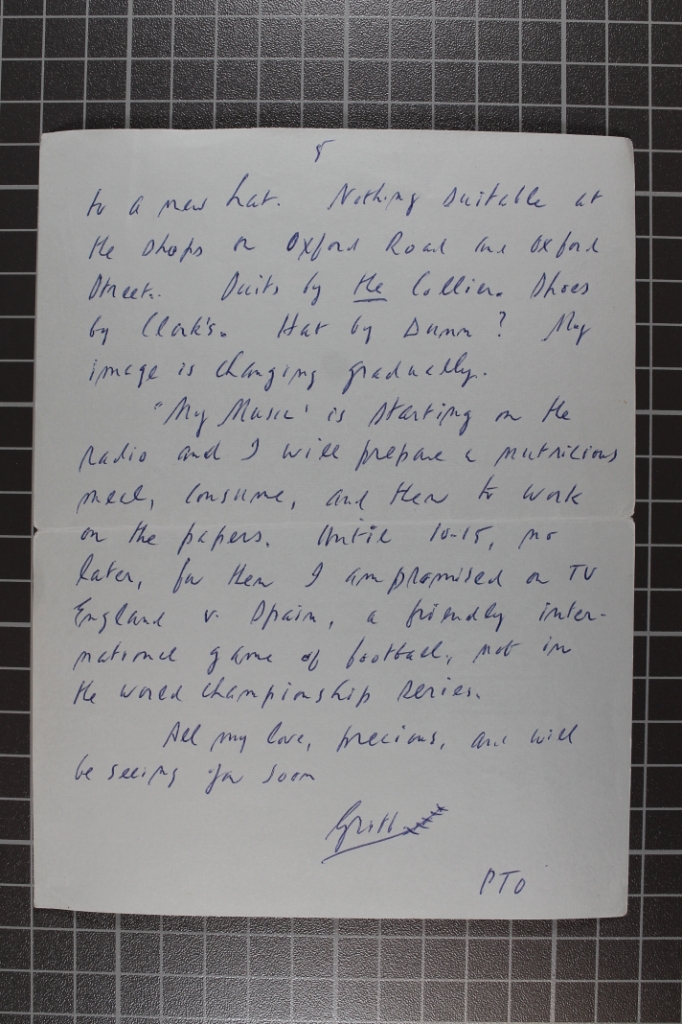 5
to a new hat. Nothing suitable at
the shops on Oxford Road and Oxford
Street. Suits by the Collier. Shoes
by Clark's. Hat by Dunn? My
image is changing gradually.
"My Music' is starting on the
radio and I will prepare a nutricious
meal, consume, and then to work
on the papers. Until 10-15, no
later, for then I am promised on TV
England v. Spain, a friendly inter-
national game of football, not in
the world championship series.
All my love, precious, and will
be seeing you soon
xxxx
PTO